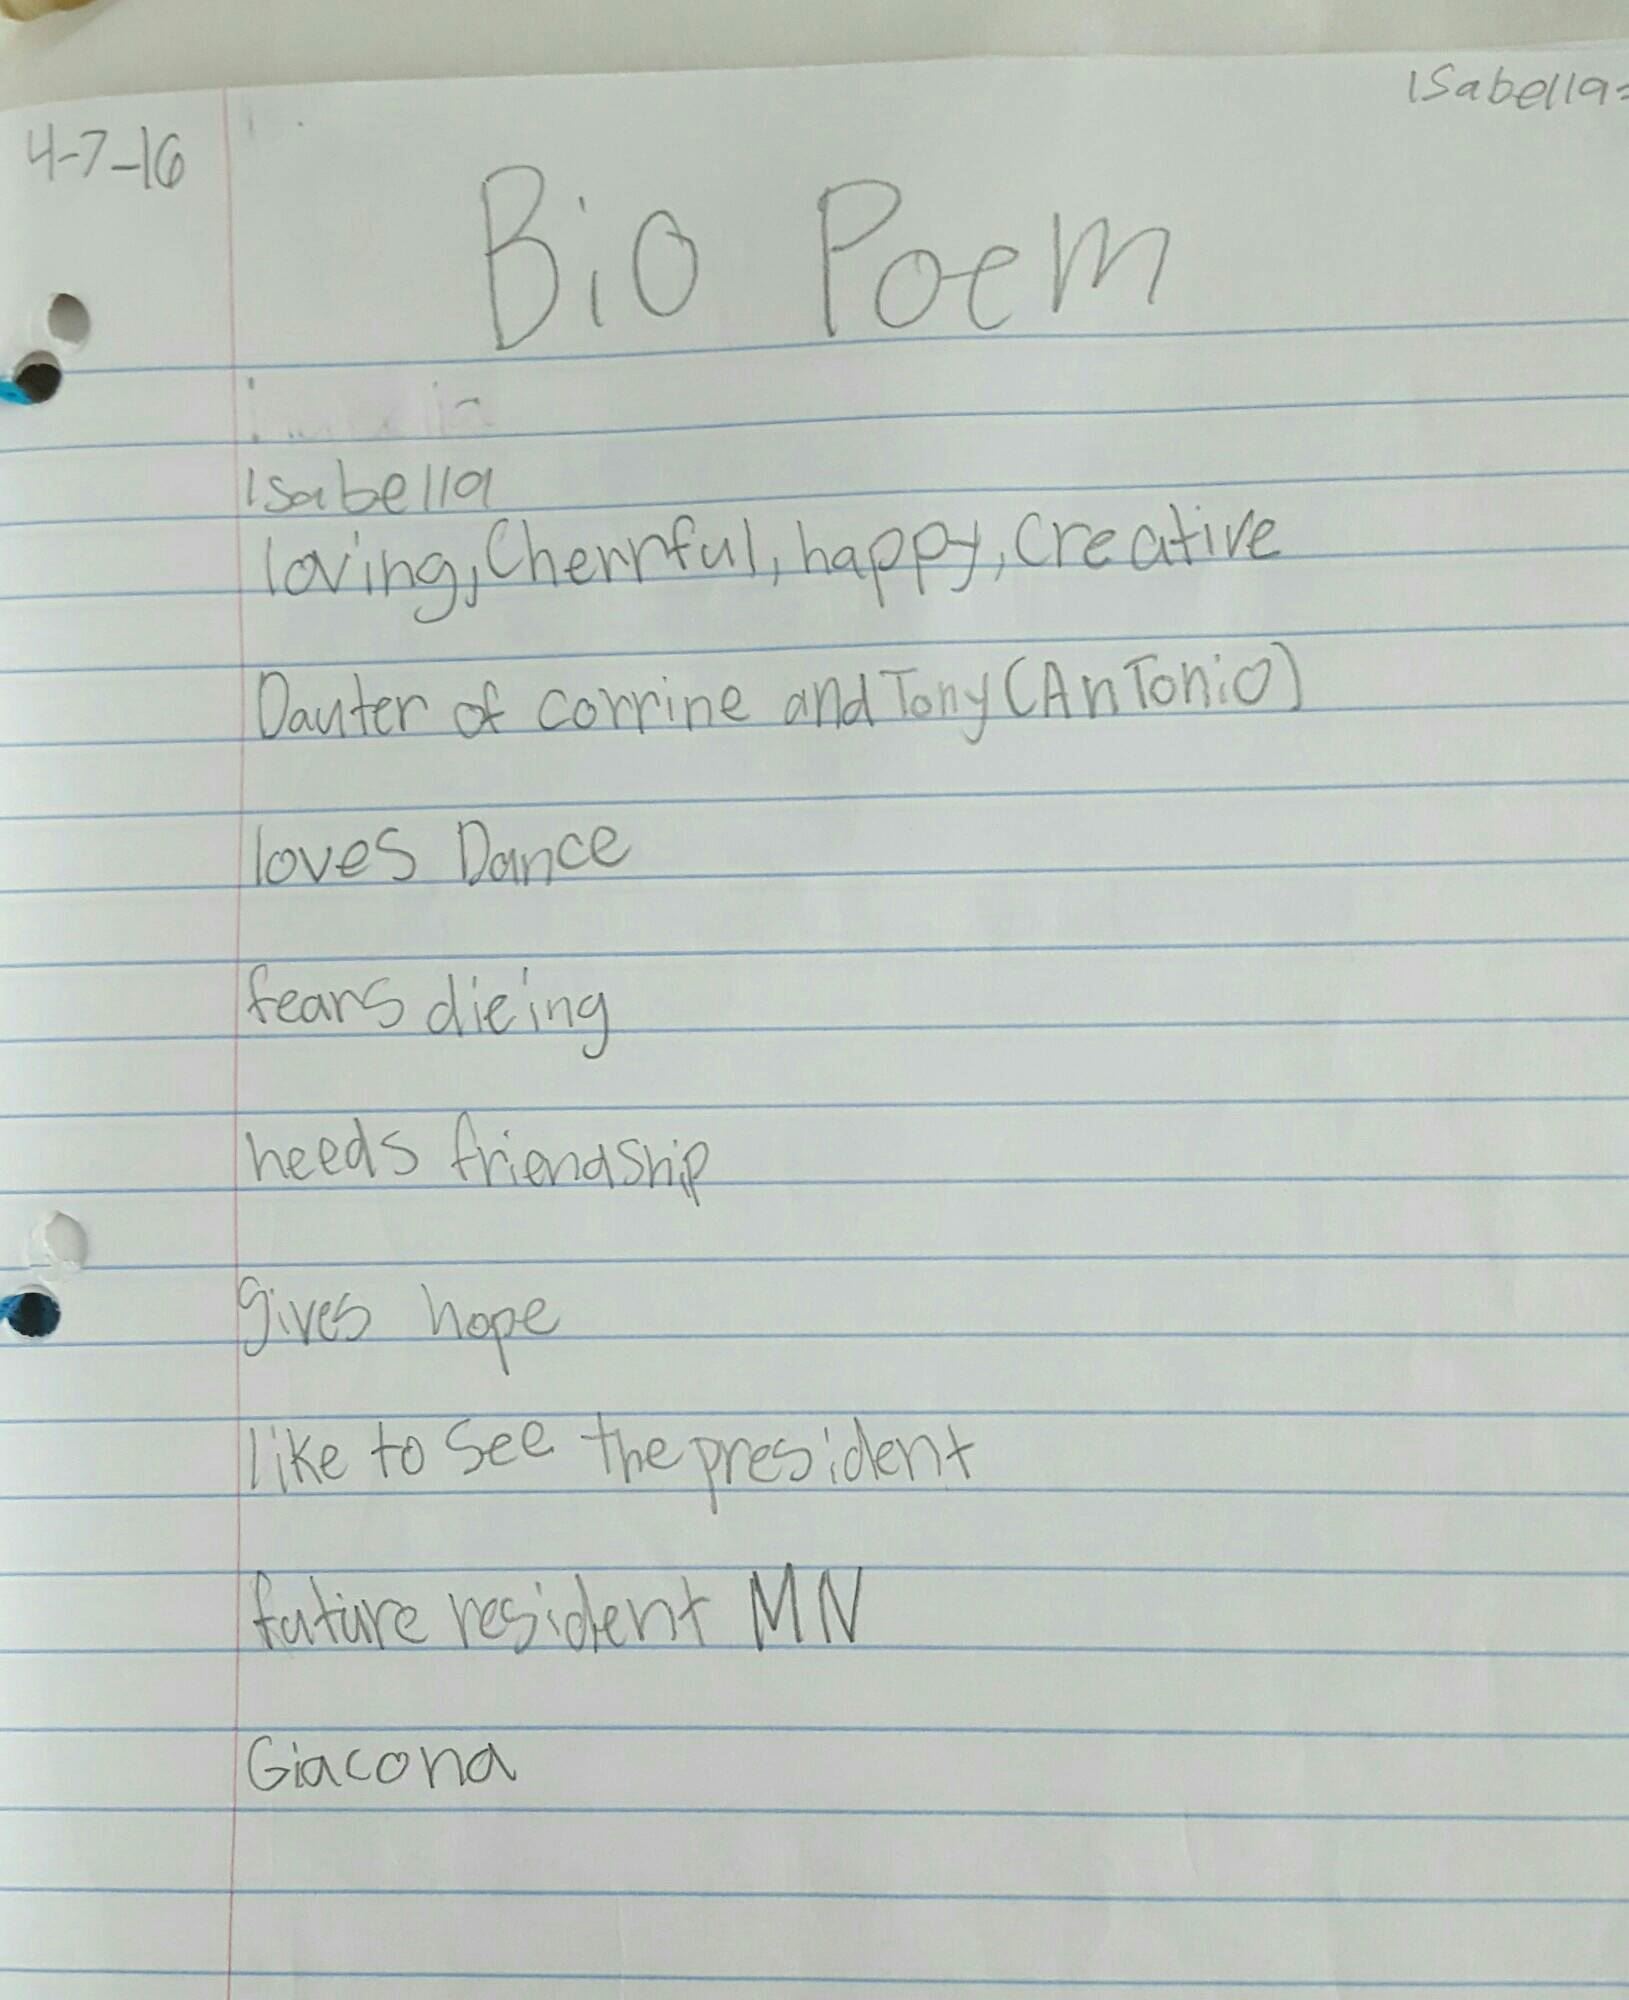 Isabella
4-7-16
Bio Poem
Isabella
loving, Cherrful, happy, creative
Dauter of corrine and Tony (AnTonio)
loves Dance
fears dieing
needs friendship
gives hope
like to see the president
future resident MN
Giacona